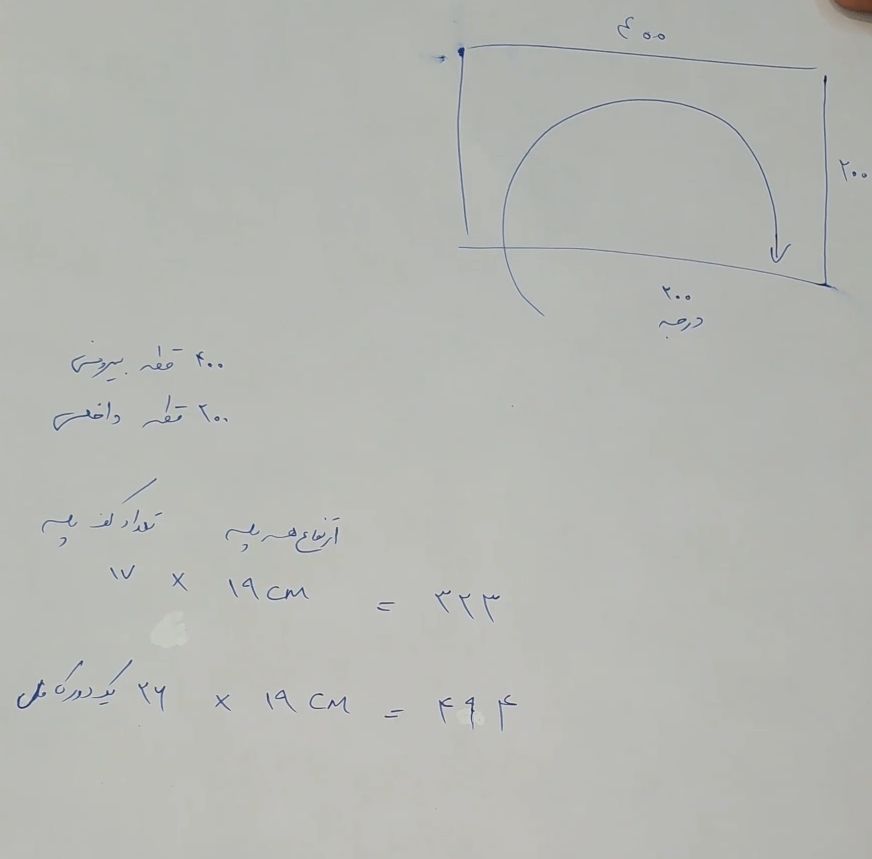 ۴۰۰
۲۰۰
۲۰۰
درجه
۴۰۰ قطر بیرونی
۲۰۰ قطر داخلی
ارتفاع هر پله تعداد کف پله
۱۷ × ۱۹ cm = ۳۲۳
یک دور کامل ۲۶ × ۱۹ cm = ۴۹۴